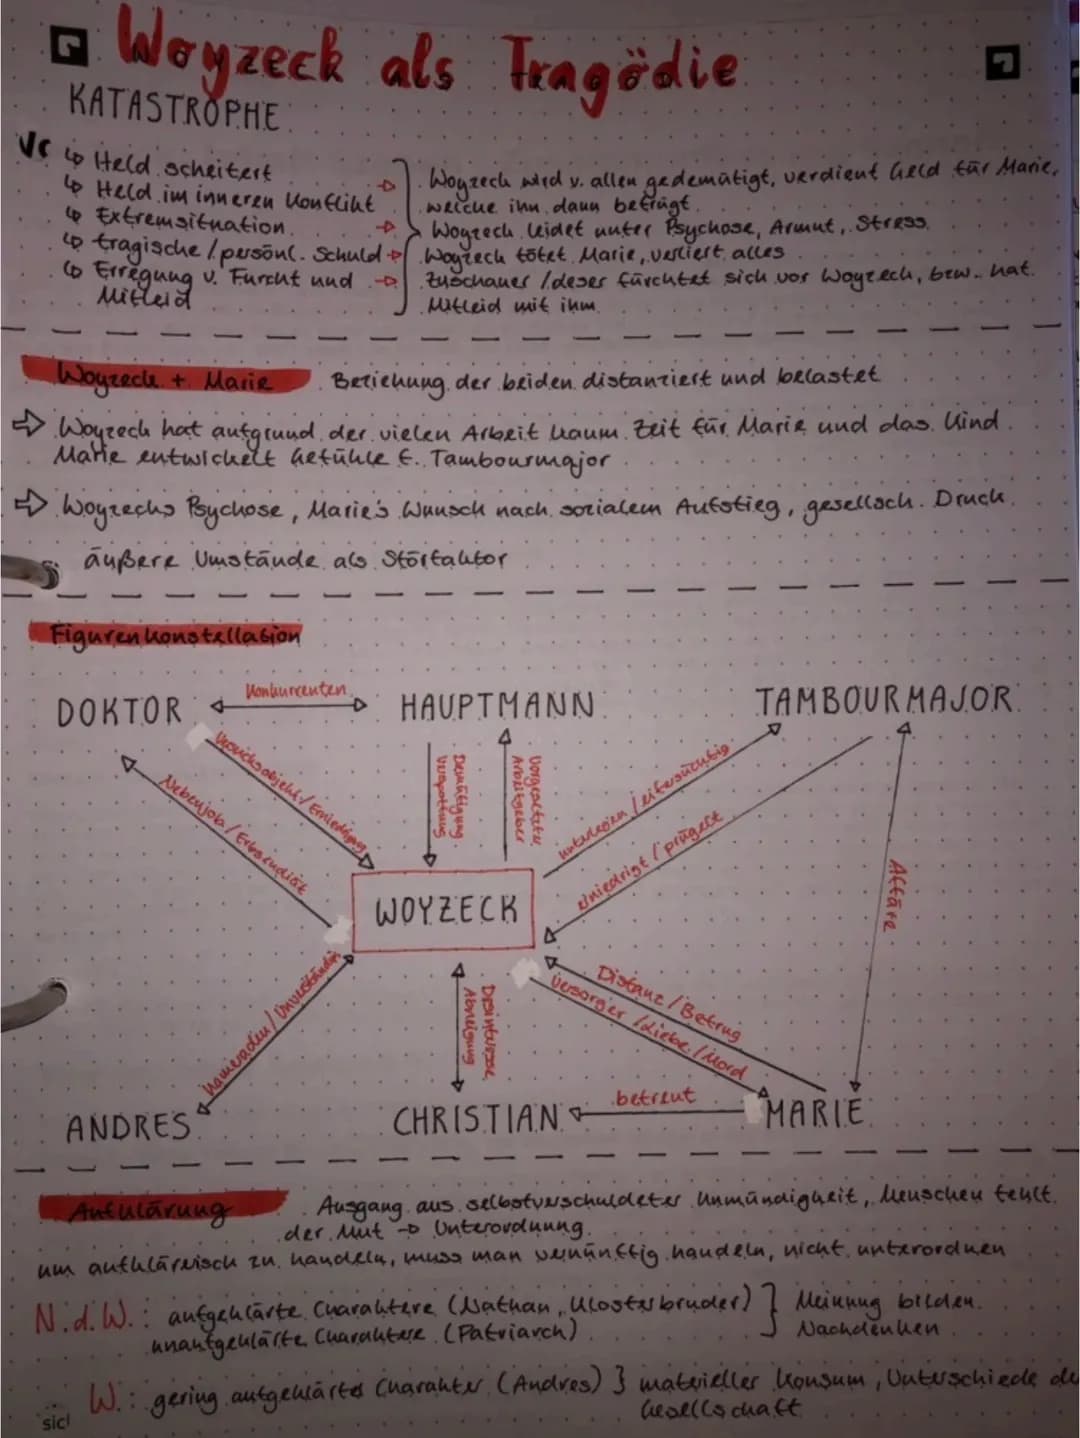 Woyzeck als Tragödie
KATASTROPHE
↳ Held scheitert
↳ Held im inneren Konflikt
↳ Extremsituation
↳ tragische / persönl. Schuld
↳ Erregung v. Furcht und
Mitleid
Woyzeck wird v. allen gedemütigt, verdient Geld für Marie,
welche ihn dann betrügt
Woyzeck leidet unter Psychose, Armut, Stress
Woyzeck tötet Marie, verliert alles
Zuschauer / Leser fürchtet sich vor Woyzeck, bzw. hat
Mitleid mit ihm
Woyzeck + Marie Beziehung der beiden distanziert und belastet
⇨ Woyzeck hat aufgrund der vielen Arbeit kaum Zeit für Marie und das Kind
Marie entwickelt Gefühle f. Tambourmajor
⇨ Woyzecks Psychose, Marie's Wunsch nach sozialem Aufstieg, gesellsch. Druck
äußere Umstände als Störfaktor
Figurenkonstellation
DOKTOR Konkurrenten HAUPTMANN TAMBOURMAJOR
Versuchsobjekt / Erniedrigung
Nebenjob / Erbsendiät
Demütigung
Verspottung
Vorgesetzter
Arbeitgeber
unterlegen / eifersüchtig
erniedrigt / prügelt
Affäre
WOYZECK
Kameraden / Unverständnis
Desinteresse
Abneigung
Distanz / Betrug
Versorger / Liebe / Mord
ANDRES CHRISTIAN betreut MARIE
Aufklärung Ausgang aus selbstverschuldeter Unmündigkeit, Menschen fehlt
der Mut → Unterordnung
um aufklärerisch zu handeln, muss man vernünftig handeln, nicht unterordnen
N.d.W.: aufgeklärte Charaktere (Nathan, Klosterbruder) } Meinung bilden
unaufgeklärte Charaktere (Patriarch) Nachdenken
W.: gering aufgeklärter Charakter (Andres) } materieller Konsum, Unterschiede
Gesellschaft